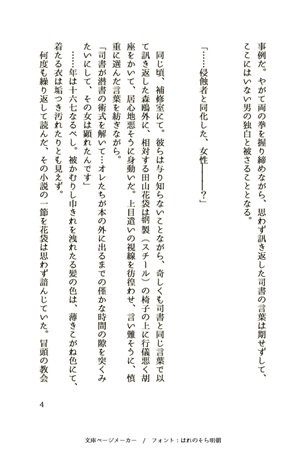 事例だ。やがて両の拳を握り締めながら、思わず訊き返した司書の言葉は期せずして、
ここにはいない男の独白と被さることとなる。
「……侵蝕者と同化した、女性――？」
同じ頃、補修室にて。彼らは与り知らないことながら、奇しくも司書と同じ言葉で以
て訊き返した森鴎外に、相対する田山花袋は鋼製（スチール）の椅子の上に行儀悪く胡
座をかいて、居心地悪そうに身動いだ。上目遣いの視線を彷徨わせ、言い難そうに、慎
重に選んだ言葉を紡ぎながら。
「司書が潜書の術式を解いて…オレたちが本の外に出るまでの僅かな時間の隙を突くみ
たいにして、その女は顕れたんです」
……年は十六七なるべし。被かむりし巾きれを洩れたる髪の色は、薄きこがね色にて、
着たる衣は垢つき汚れたりとも見えず。
何度も繰り返して読んだ、その小説の一節を花袋は思わず諳んじていた。冒頭の教会
4
文庫ページメーカー / フォント：はれのそら明朝